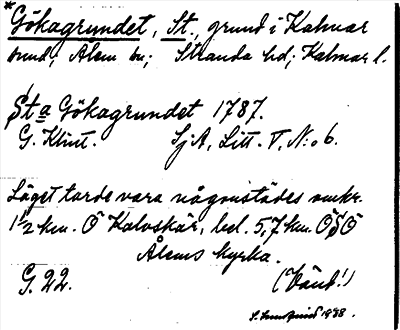 *Gökagrundet, St., grund i Kalmar
sund, Ålem sn; Stranda hd; Kalmar l.
Sta Gökagrundet 1787.
G. Klint. SjA, Litt. V, N:o 6.
Läget torde vara någonstädes omkr.
1 1/2 km. Ö Kalvskär, bel. 5,7 km. ÖSÖ
Ålems kyrka.
G. 22. (Vänd!)
1938.